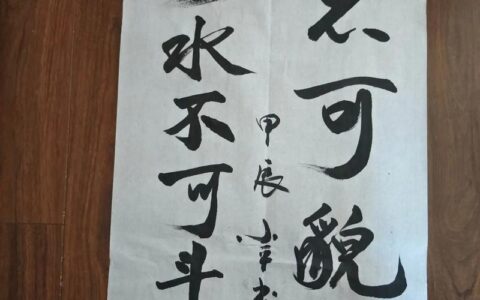 不可貌
甲辰
水不可斗